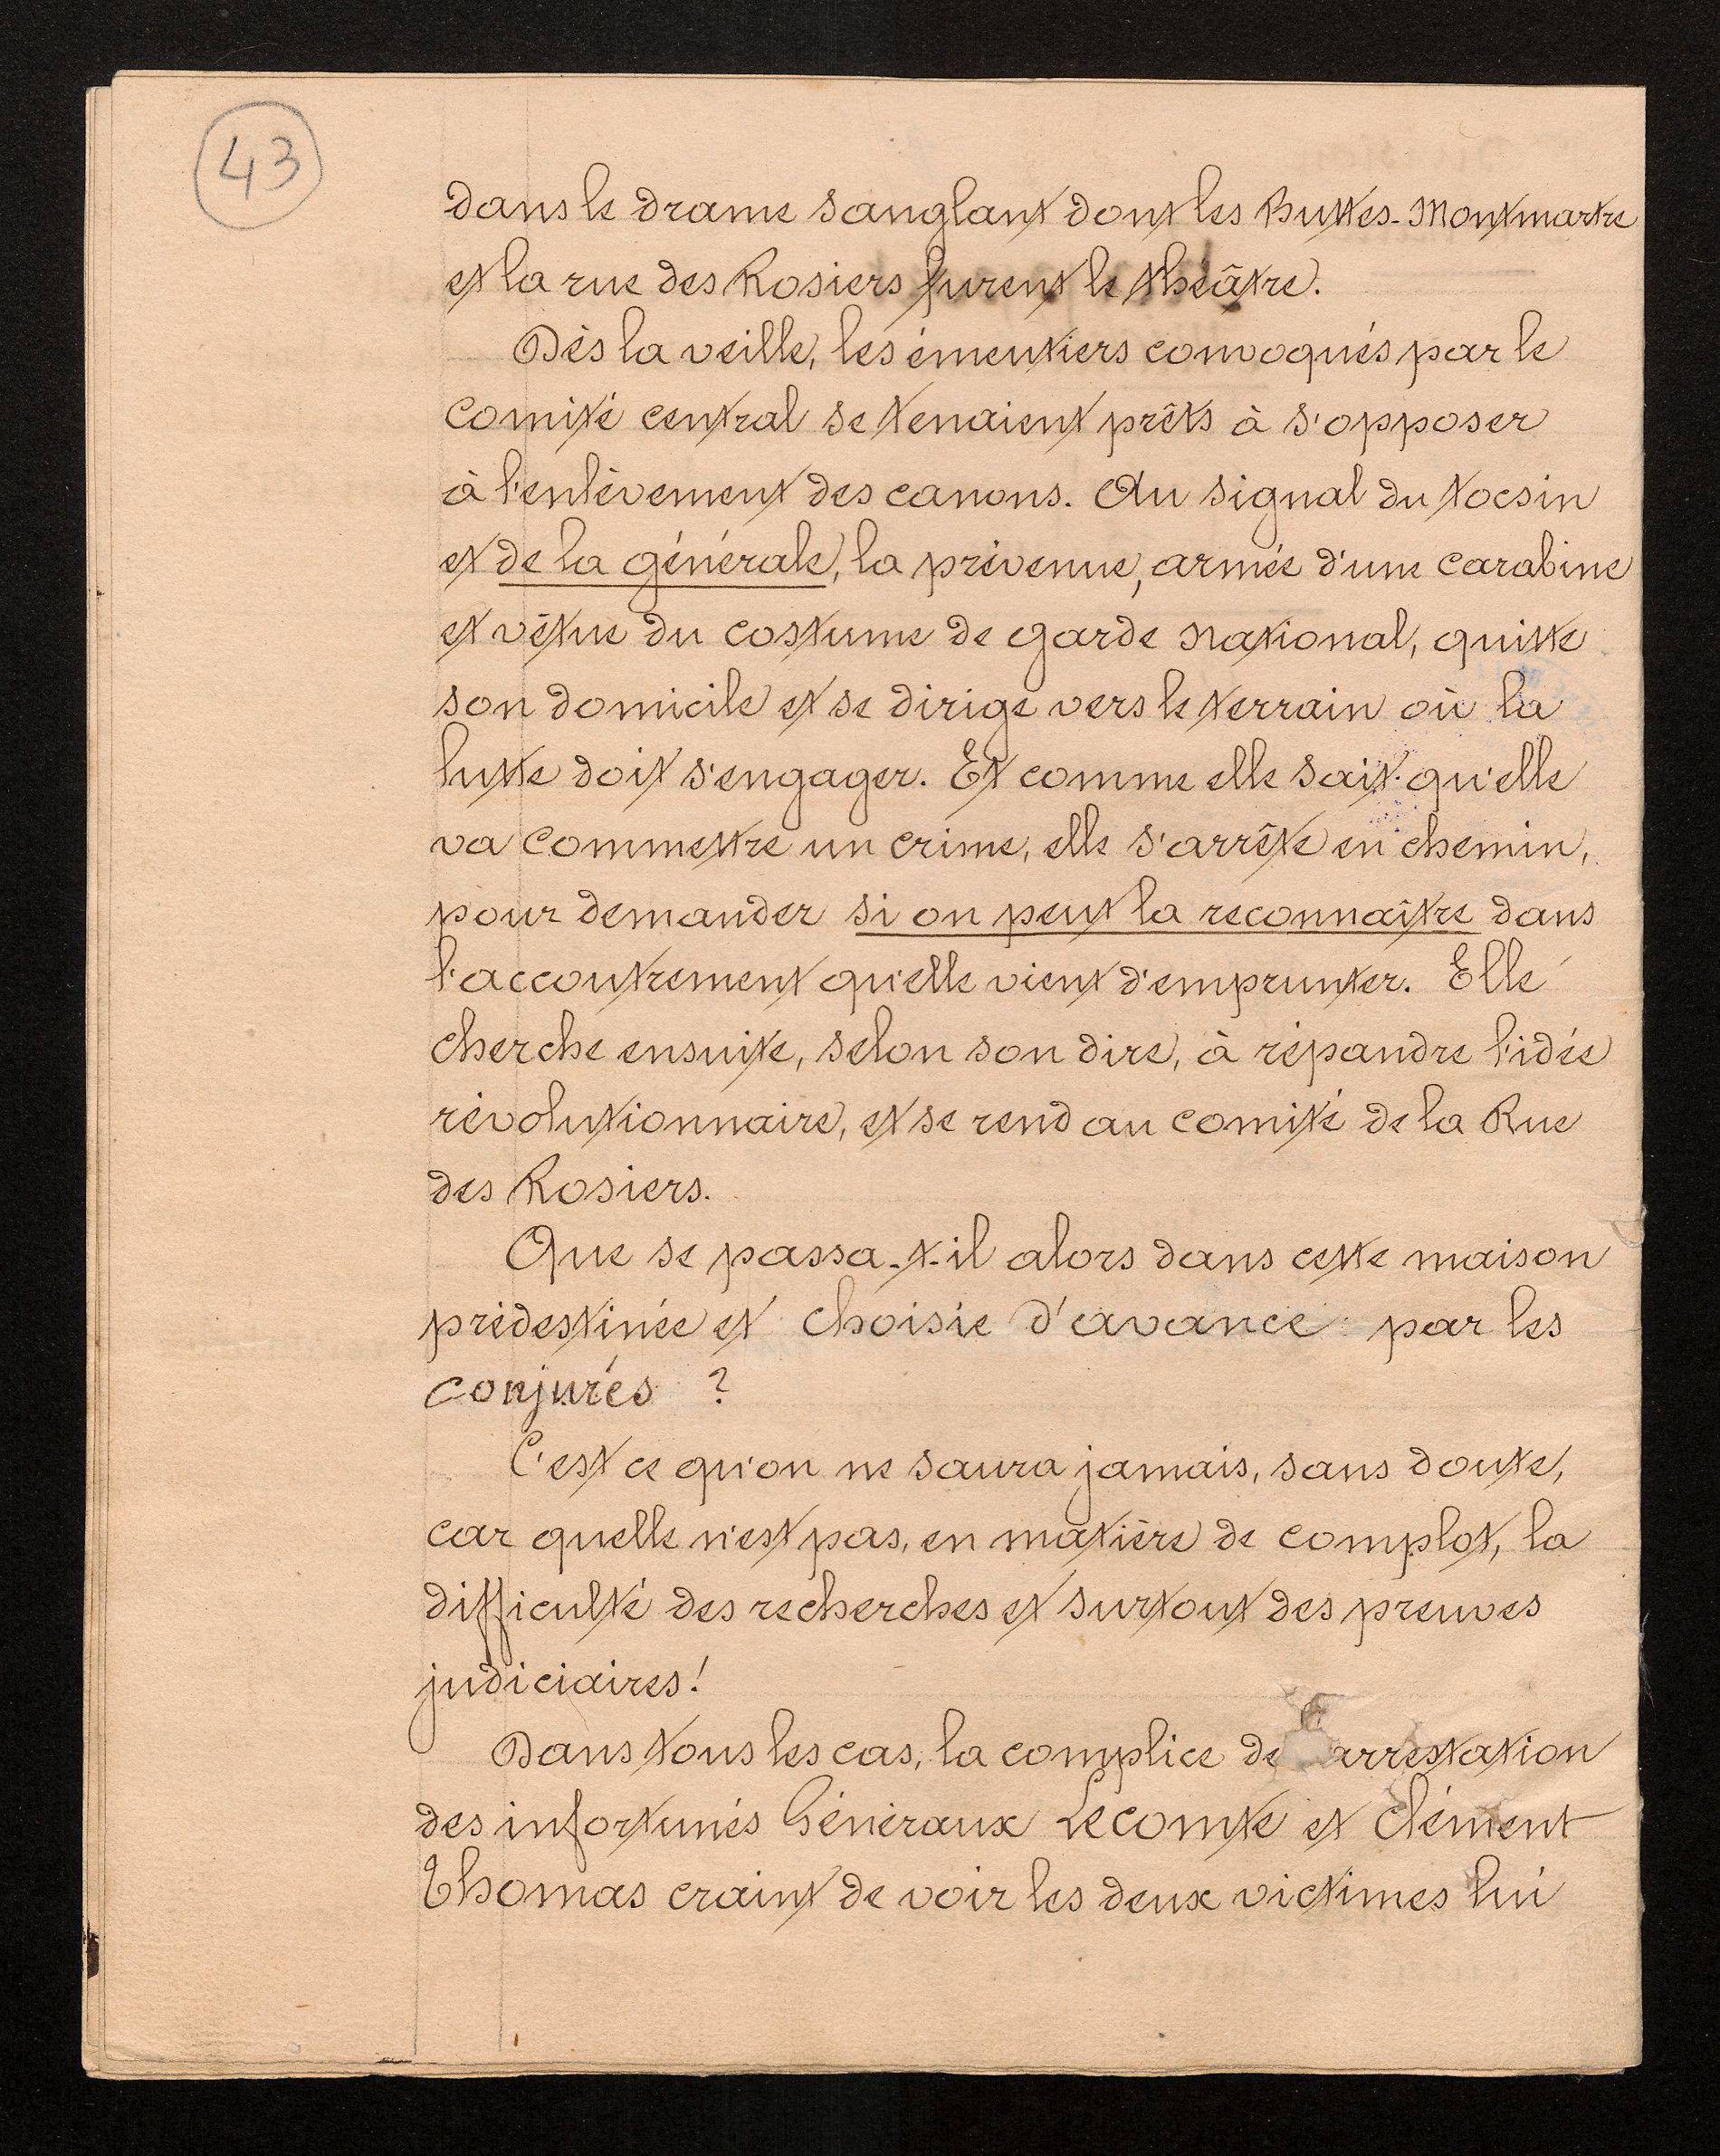 43
dans le drame sanglant dont les Buttes-Montmartre
et la rue des Rosiers furent le théâtre.
Dès la veille, les émeutiers convoqués par le
Comité central se tenaient prêts à s'opposer
à l'enlèvement des canons. Au signal du tocsin
et de la générale, la prévenue, armée d'une carabine
et vêtue du costume de garde national, quitte
son domicile et se dirige vers le terrain où la
lutte doit s'engager. Et comme elle sait qu'elle
va commettre un crime, elle s'arrête en chemin,
pour demander si on peut la reconnaître dans
l'accoutrement qu'elle vient d'emprunter. Elle
cherche ensuite, selon son dire, à répandre l'idée
révolutionnaire, et se rend au comité de la Rue
des Rosiers.
Que se passa-t-il alors dans cette maison
prédestinée et choisie d'avance par les
conjurés ?
C'est ce qu'on ne saura jamais, sans doute,
car quelle n'est pas, en matière de complot, la
difficulté des recherches et surtout des preuves
judiciaires !
Dans tous les cas, la complice de arrestation
des infortunés Généraux Lecomte et Clément
Thomas craint de voir les deux victimes lui